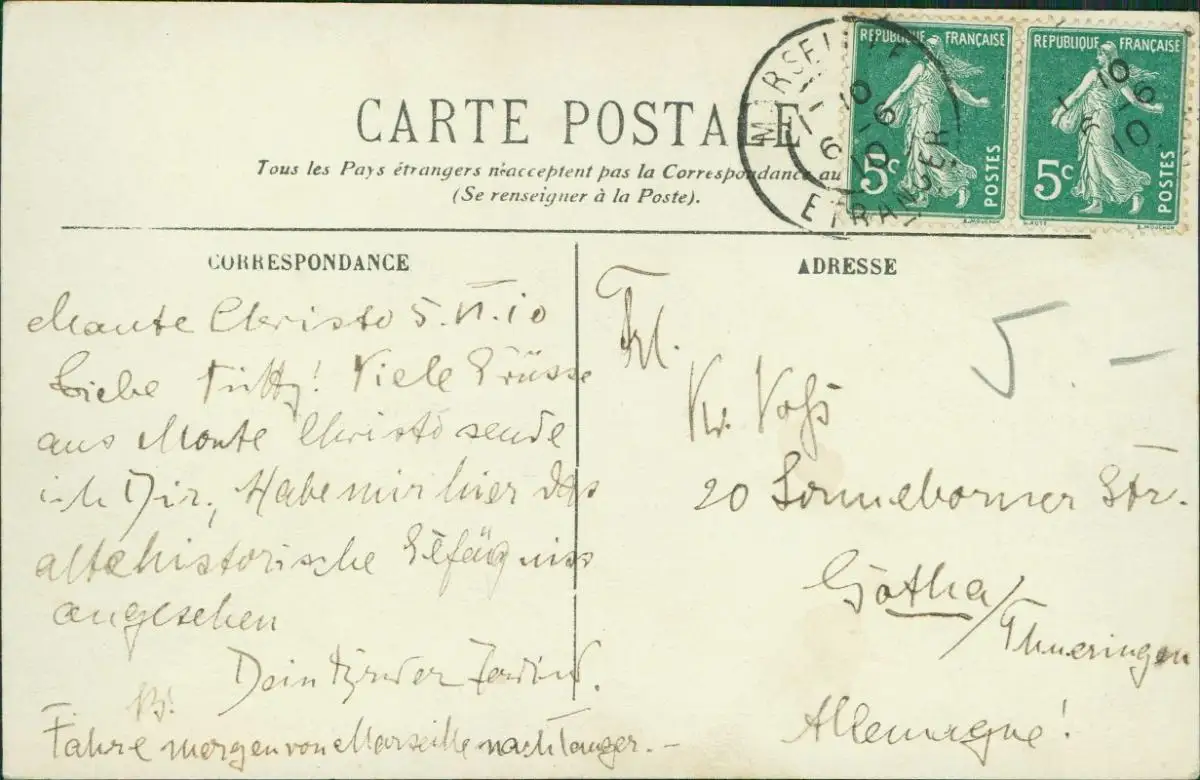 CARTE POSTALE
Tous les Pays étrangers n'acceptent pas la Correspondance au
(Se renseigner à la Poste).
REPUBLIQUE FRANÇAISE
5c
POSTES
REPUBLIQUE FRANÇAISE
5c
POSTES
MARSEILLE
10
6-6
10
ETRANGER
10
6-6
10
CORRESPONDANCE
Monte Christo 5.VI.10
Liebe Tutty! Viele Grüsse
aus Monte Christo sende
ich Dir, Habe mir hier das
altehistorische Gefängniss
angesehen
Dein Bruder Ferdind.
Fahre morgen von Marseille nach Tanger. -
ADRESSE
5. -
Frl.
Voß
20 Sonneborner Str.
Gotha/
Thueringen
Allemagne!